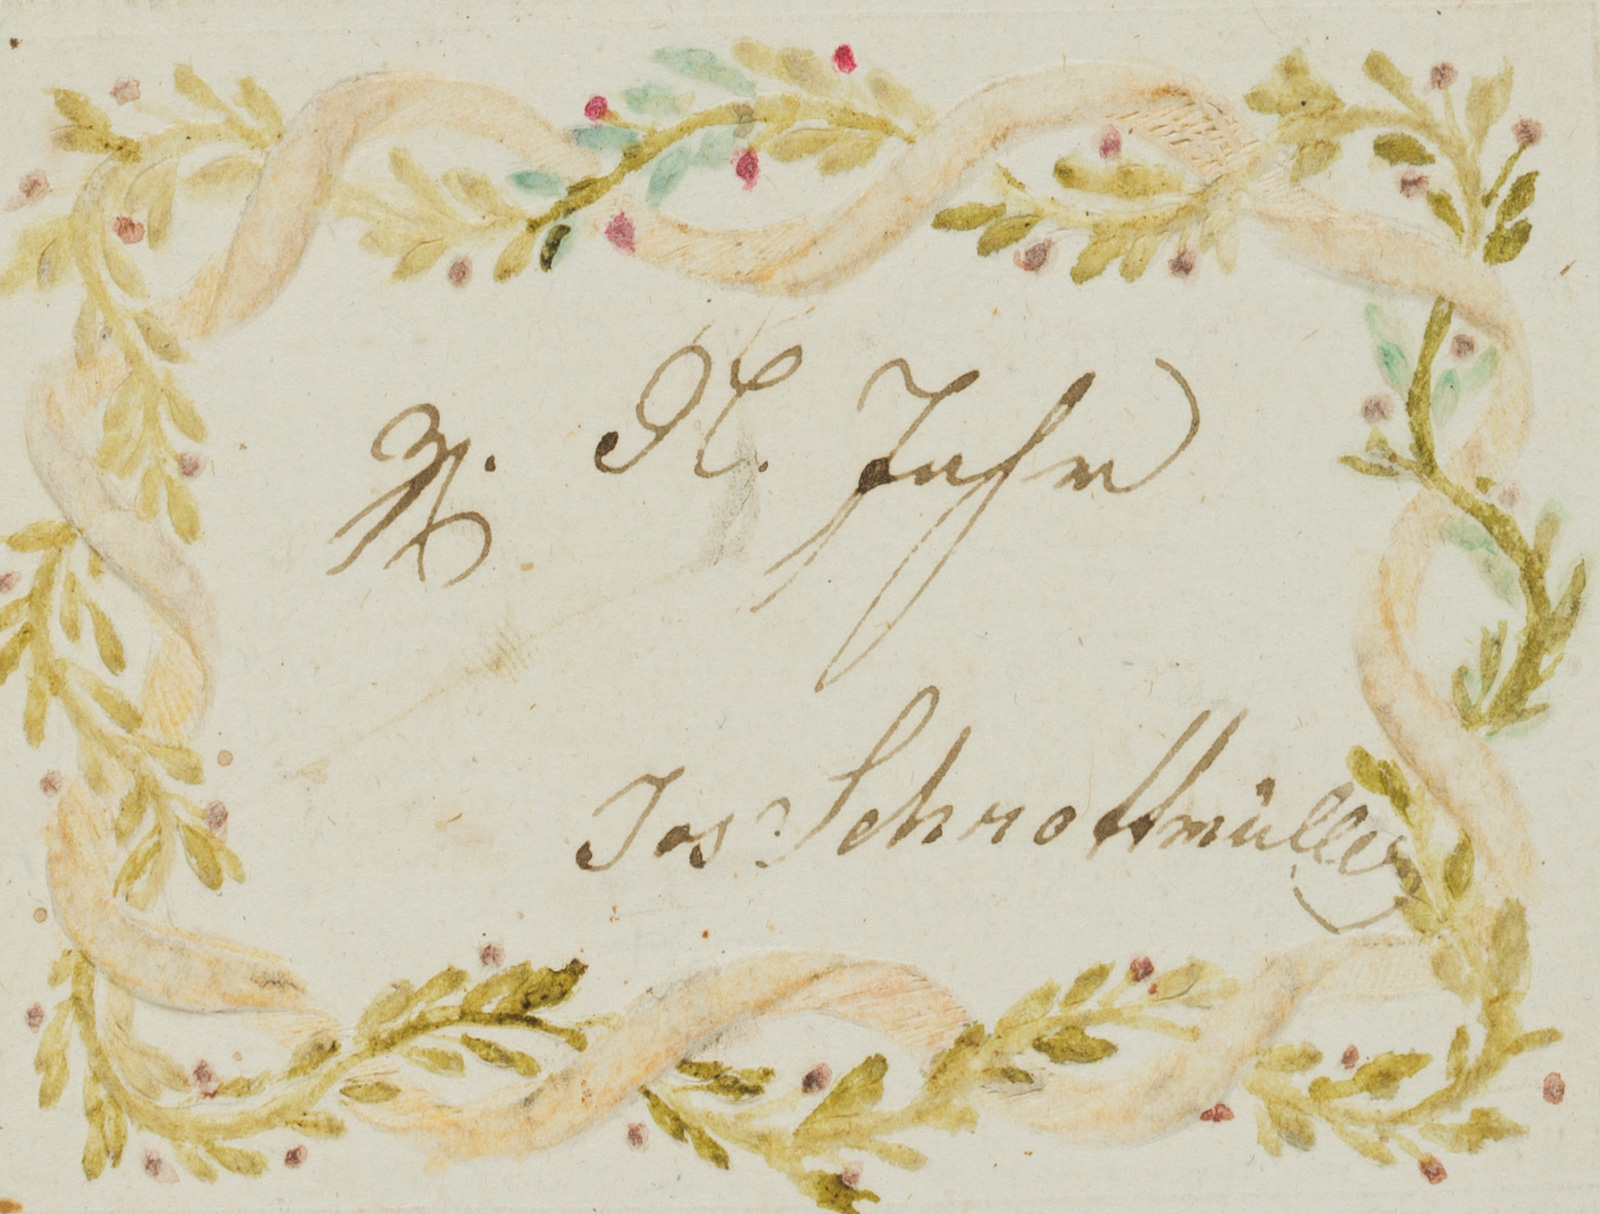 z. N. Jahr
Jos: Schrottmüller